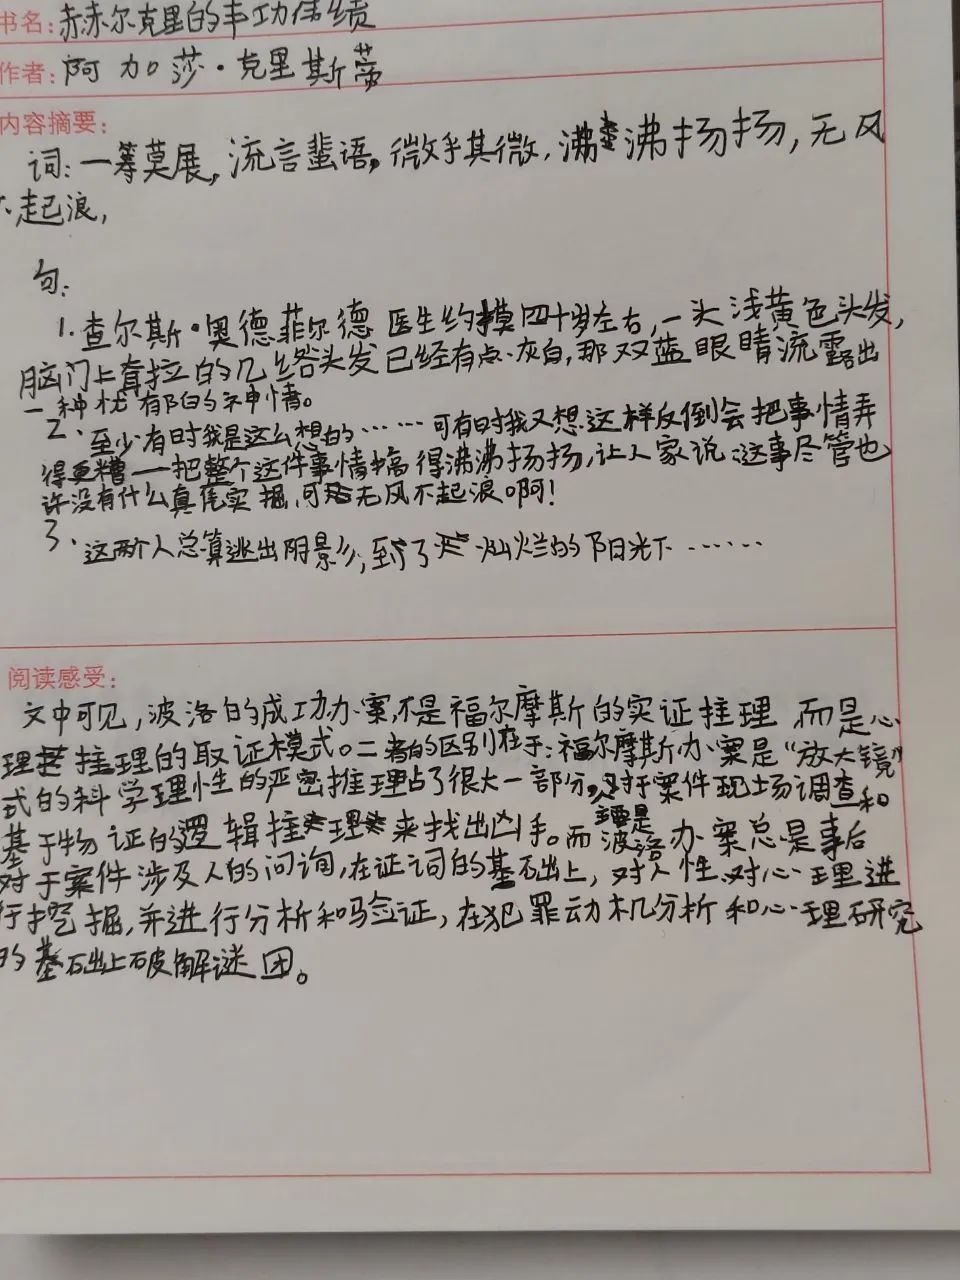 书名：赫尔克里的丰功伟绩
作者：阿加莎·克里斯蒂
内容摘要：
词：一筹莫展，流言蜚语，微乎其微，沸沸扬扬，无风
不起浪，
句：
1.查尔斯·奥德菲尔德医生约摸四十岁左右，一头浅黄色头发，
脑门上耷拉的几绺头发已经有点灰白，那双蓝眼睛流露出
一种忧郁的神情。
2、至少有时我是这么想的……可有时我又想这样反倒会把事情弄
得更糟——把整个这件事情搞得沸沸扬扬，让人家说：这事尽管也
许没有什么真凭实掘，可无风不起浪啊！
3、这两个人总算逃出阴影，到了灿烂的阳光下……
阅读感受：
文中可见，波洛的成功办案，不是福尔摩斯的实证推理 而是心
理推理的取证模式。二者的区别在于：福尔摩斯办案是“放大镜”
式的科学理性的严密推理占了很大一部分，对于案件现场调查和
基于物证的逻辑推理来找出凶手。而波洛办案总是事后
主要是
对于案件涉及人的问询，在证词的基础上，对人性、对心理进
行挖掘，并进行分析和验证，在犯罪动机分析和心理研究
的基础上破解谜团。